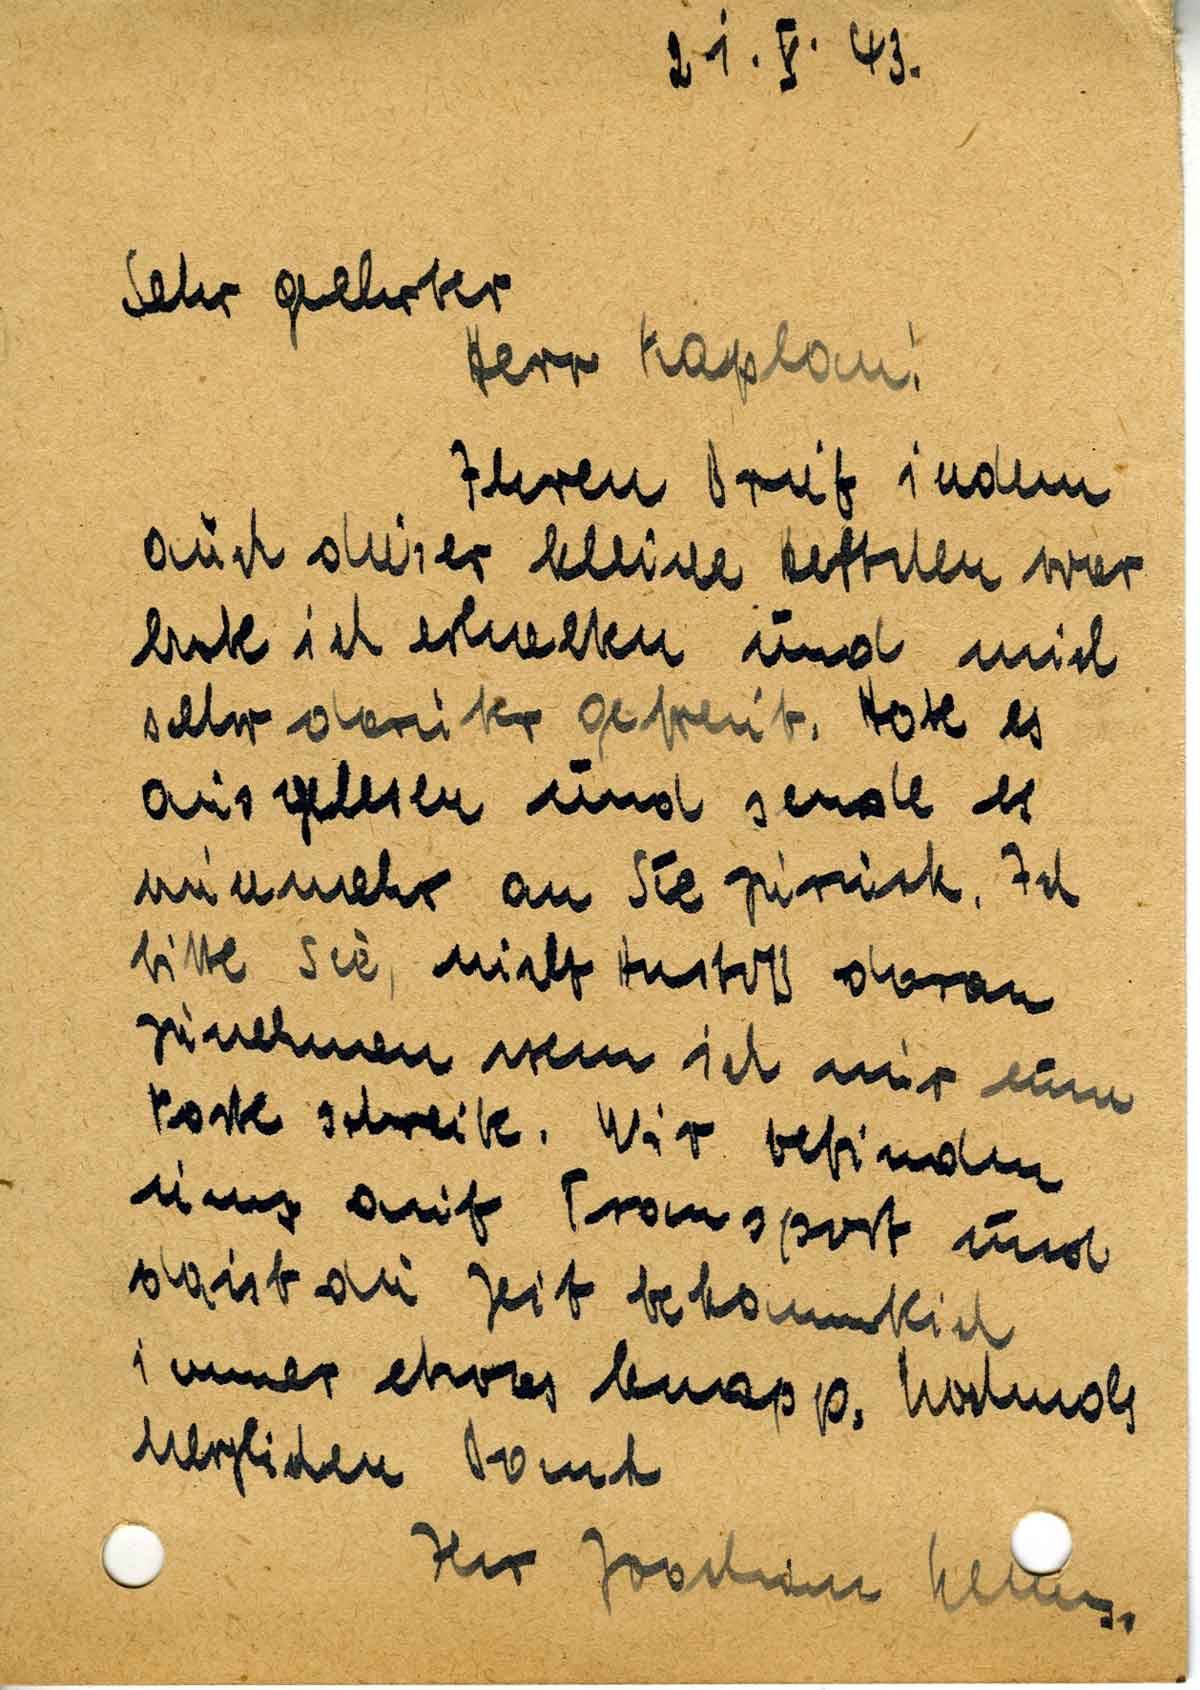 21. V. 43.
Sehr geehrter
Herr Kaplan!
Ihren Brief indem
auch dieser kleine Heftchen war
habe ich erhalten und mich
sehr darüber gefreut. Habe es
ausgelesen und sende es
nunmehr an Sie zurück. Ich
bitte Sie, nicht Anstoß daran
zunehmen wen ich nur eine
Karte schreibe. Wir befinden
uns auf Transport und
da ist die Zeit bekanntlich
immer etwas knapp. Nochmals
herzlichen Dank
Ihr Joachim